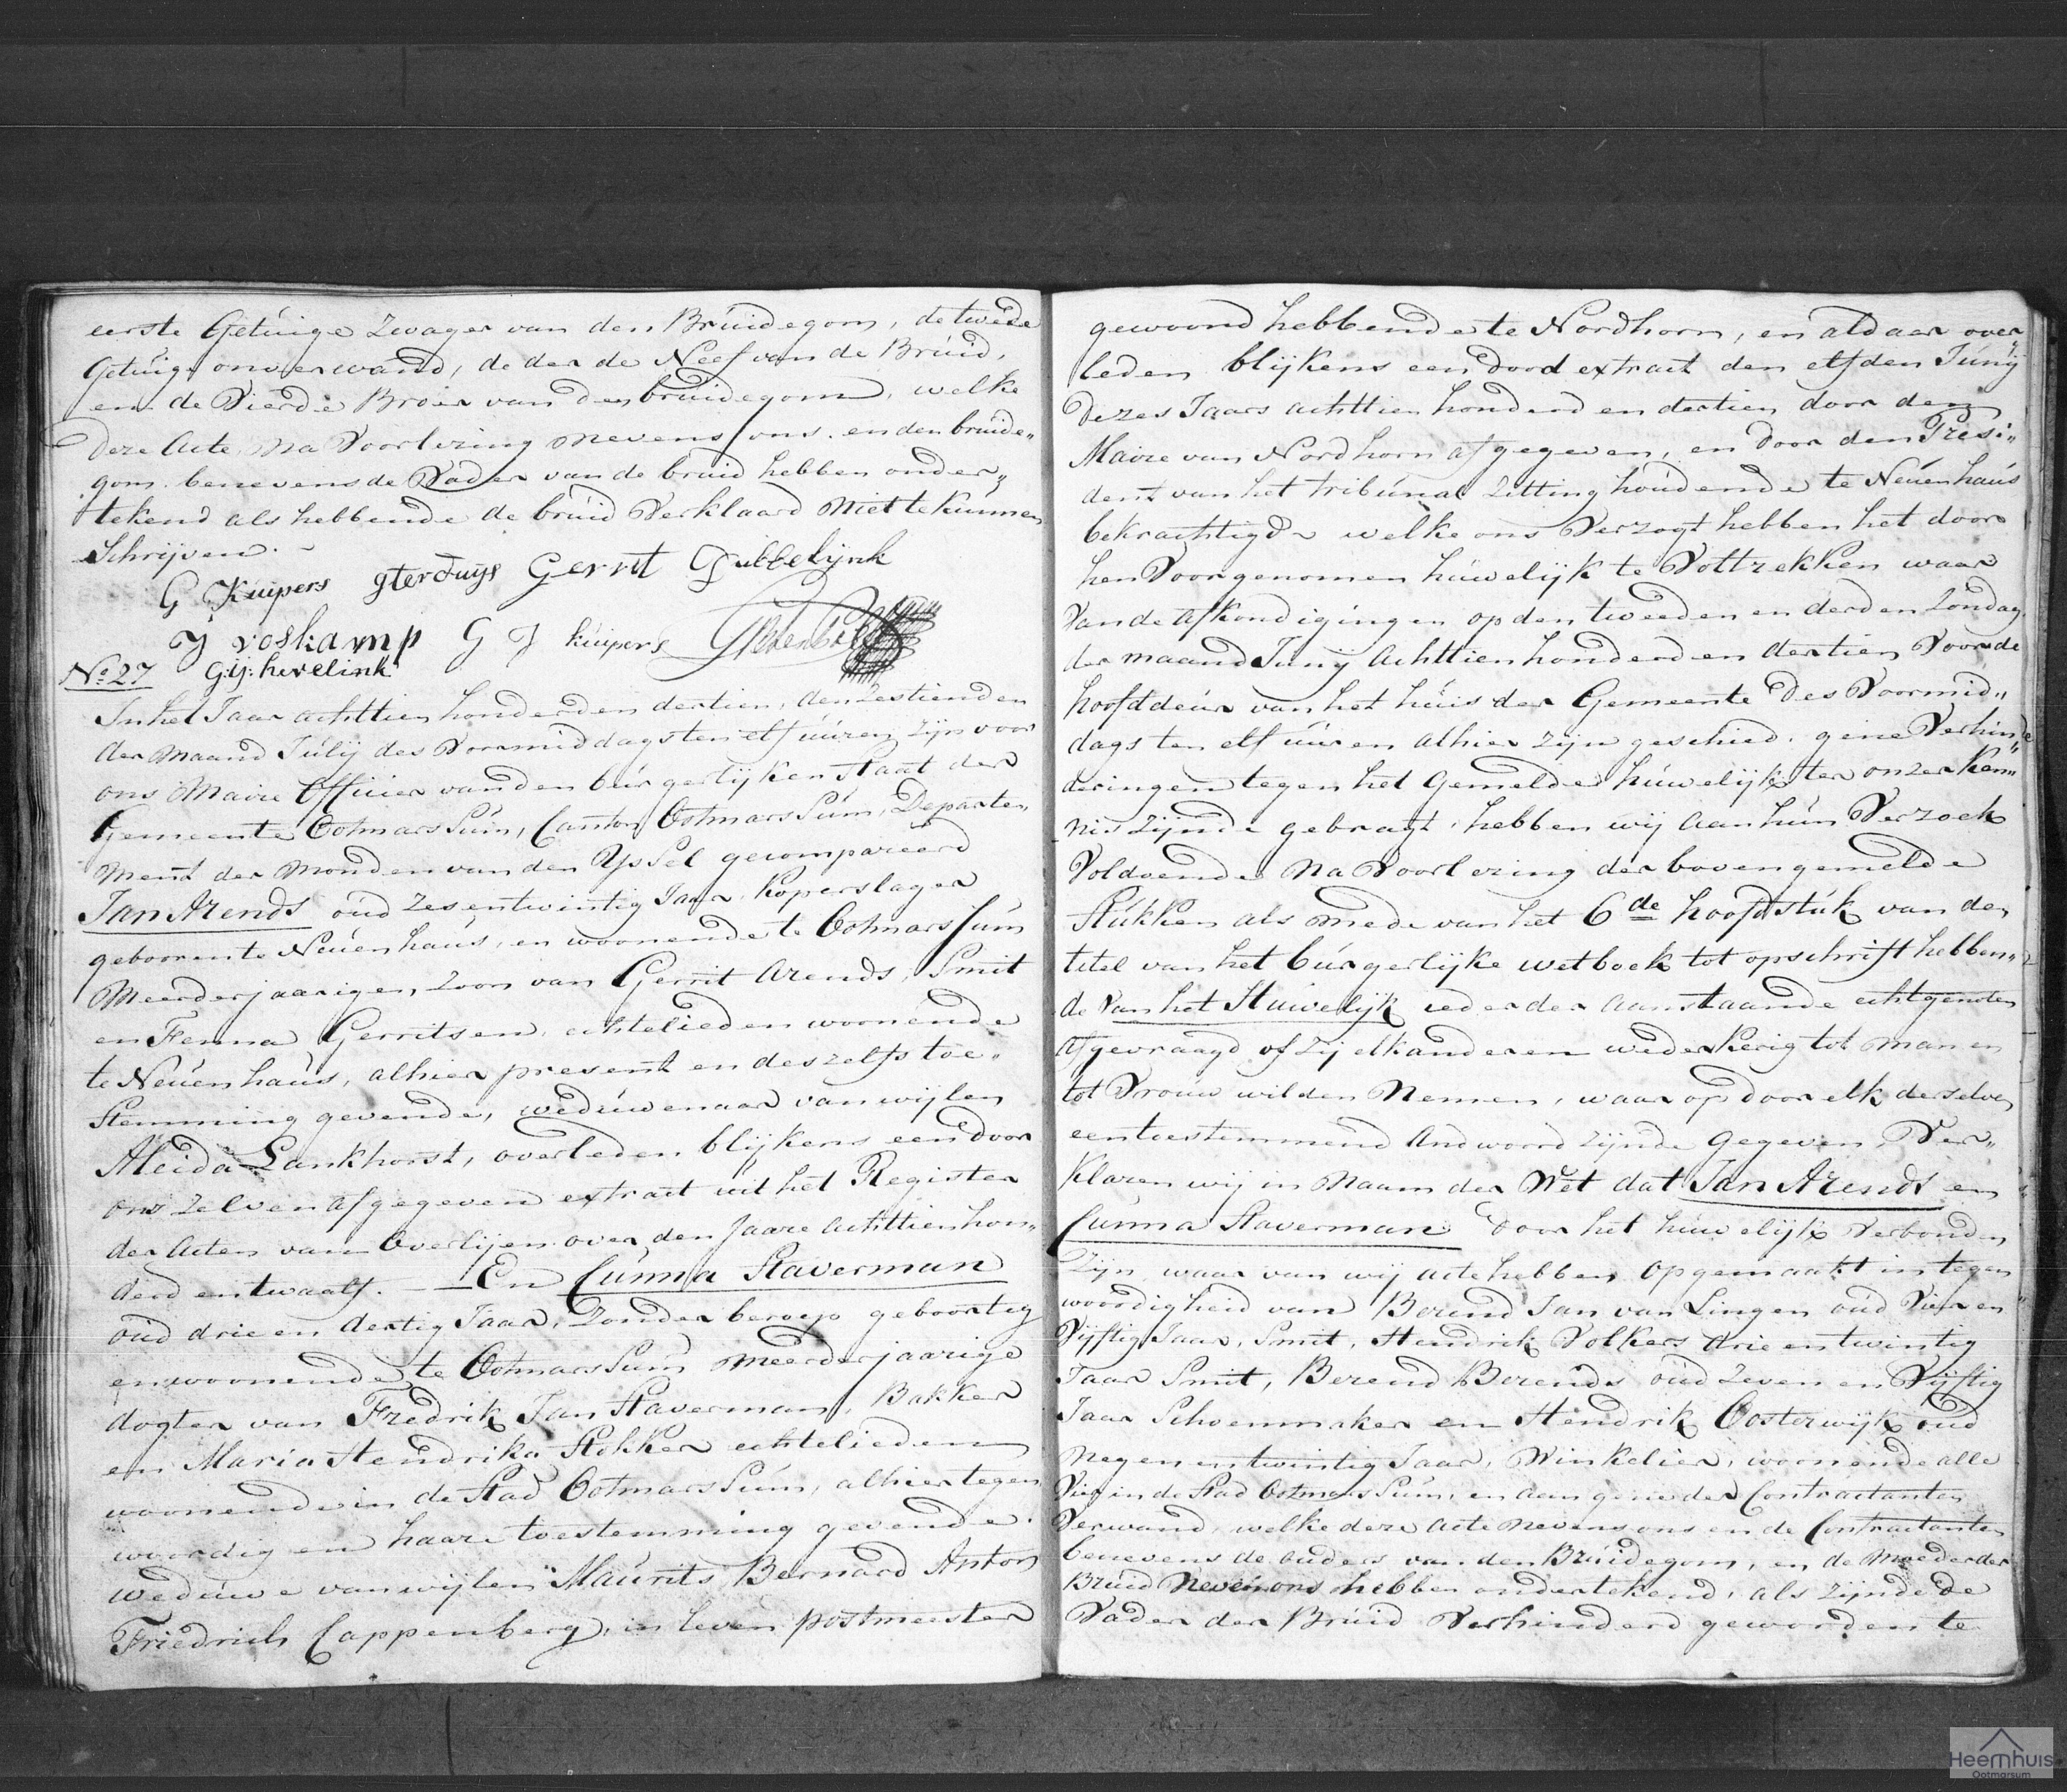 eerste Getuige Zwager van den Bruidegom, de twede
Getuige onverwand, de derde Neef van de Bruid,
en de Vierde Broer van den bruidegom, welke
deze Acte Na Voorlezing Nevens ons en den bruide„
gom benevens de Vader van de bruid hebben onder„
tekend als hebbende de bruid Verklaard Niet te Kunnen
Schrijven. ~
G Kuipers gterduijs Gerrit Dubbelijnk
J voskamp G J kuipers
No: 27 G:IJ: hevelink
In het Jaar achttien honderd en dertien, den Zestienden
der Maand Julij des Voormiddags ten elf uuren zijn voor
ons Maire Officier van den burgerlijken Staat der
Gemeente OotmarsSum, Canton OotmarsSum, Departe„
ment der Monden van den YsSel gecompareerd
Jan Arends oud Zesentwintig Jaar, Koperslager
geboren te Neuenhaus, en woonende te OotmarsSum
Meerderjaarigen Zoon van Gerrit Arends, Smit
en Fenna Gerritsen, echtelieden woonende
te Neuenhaus, alhier present en deszelfs toe„
Stemming gevende, weduwenaar van wijlen
Aleida Lankhorst, overleden blijkens een door
ons Zelven afgegeven extract uit het Register
der Acten van Overlijen over den Jaare Achttien hon„
derd en twaalf. — En Cunna Staverman
oud drie en dertig Jaar, Zonder beroep geboortig
en woonende te OotmarsSum Meerderjaarige
dogter van Fredrik Jan Staverman, Bakker
en Maria Hendrika Stokker echtelieden
woonende in de Stad OotmarsSum, alhier tegen
woordig en haare toestemming gevende.
weduwe van wijlen Maurits Bernard Anton
Friedrich Cappenberg, in leven postmeister
gewoond hebbende te Nordhorn, en aldaar over„
leden blijkens een dood extract den elfden Junij
dezes Jaars achttien honderd en dertien door den
Maire van Nordhorn afgegeven, en door den Presi„
dent van het tribunal Zitting houdende te Neuenhaus
bekrachtigd welke ons Verzogt hebben het door
hen Voorgenomen huwelijk te Voltrekken waar
Van de Afkondigingen op den tweeden en derden Zondag
der maand Junij Achttien honderd en dertien Voor de
hoofddeur van het huis der Gemeente des Voormid„
dags ten elf uuren alhier zijn geschied, gene Verhin„
deringen tegen het Gemelde huwelijk ter onzer Ken„
nis zijnde gebragt, hebben wij aan hun Verzoek
Voldoende Na Voorlezing der bovengemelde
Stukken als mede van het 6de hoofdstuk van den
titel van het burgerlijke wetboek tot opschrift hebben„
de Van het Huwelijk ieder der aanstaande echtgenoten
afgevraagd of Zij elkanderen wederkerig tot Man en
tot Vrouw wilden Nemen, waar op door elk derselve
een toestemmend Andwoord zijnde gegeven Ver„
Klaren wij in Naam der Wet dat Jan Arends en
Cunna Staverman door het huwelijk Verbonden
Zijn waar van wij acte hebben Opgemaakt in tegen
woordigheid van Berend Jan van Lingen oud Vier en
Vijftig Jaar, Smit, Hendrik Volkers drie en twintig
Jaar Smit, Berend Berends oud Zeven en Vijftig
Jaar Schoenmaker en Hendrik Oosterwijk oud
Negen en twintig Jaar, Winkelier, woonende alle
Vier in de Stad OotmarsSum, en aan gene der Contractanten
Verwand, welke deze acte nevens ons en de Contractanten
benevens de ouders van den Bruidegom, en de Moeder der
Bruid Nevens ons hebben ondertekend, als zijnde de
Vader der Bruid Verhinderd geworden te
Heemhuis
Ootmarsum